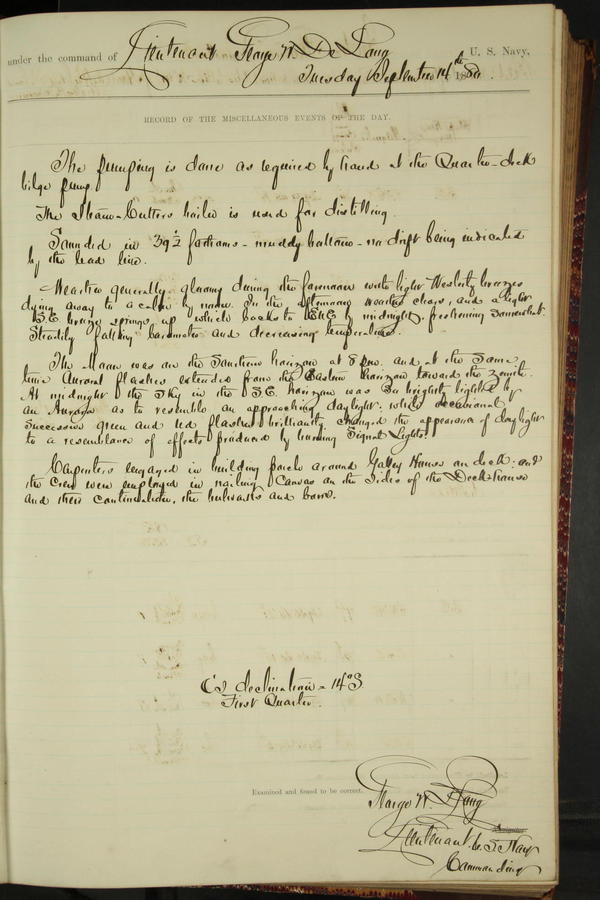 under the command of Lieutenant George W. De Long U. S. Navy,
Tuesday September 14th 1880.
RECORD OF THE MISCELLANEOUS EVENTS OF THE DAY.
The pumping is done as required by hand at the Quarter-deck
bilge pump.
The Steam-Cutters boiler is used for distilling.
Sounded in 39½ fathoms - muddy bottom - no drift being indicated
by the lead line.
Weather generally gloomy during the forenoon with light Westerly breezes
dying away to a calm by noon. In the afternoon weather clears, and a light
S.E. breeze springs up which backs to ENE by midnight, freshening somewhat.
Steadily falling barometer and decreasing temperature.
The Moon was on the Southern horizon at 8 p.m. and at the same
time Auroral flashes extended from the Eastern horizon toward the zenith.
At midnight the sky in the S.E. horizon was so brightly lighted by
an Aurora as to resemble an approaching daylight; while occasional
succession green and red flashes brilliantly changed the appearance of daylight
to a resemblance of effects produced by burning Signal Lights.
Carpenters engaged in building porch around Galley House on deck: and
the crew were employed in nailing canvas on the sides of the Deck-house
and their continuation, the bulwarks and boom.
declination = 14° S.
First Quarter.
Examined and found to be correct.
George W. De Long
Lieutenant U. S. Navy
Commanding